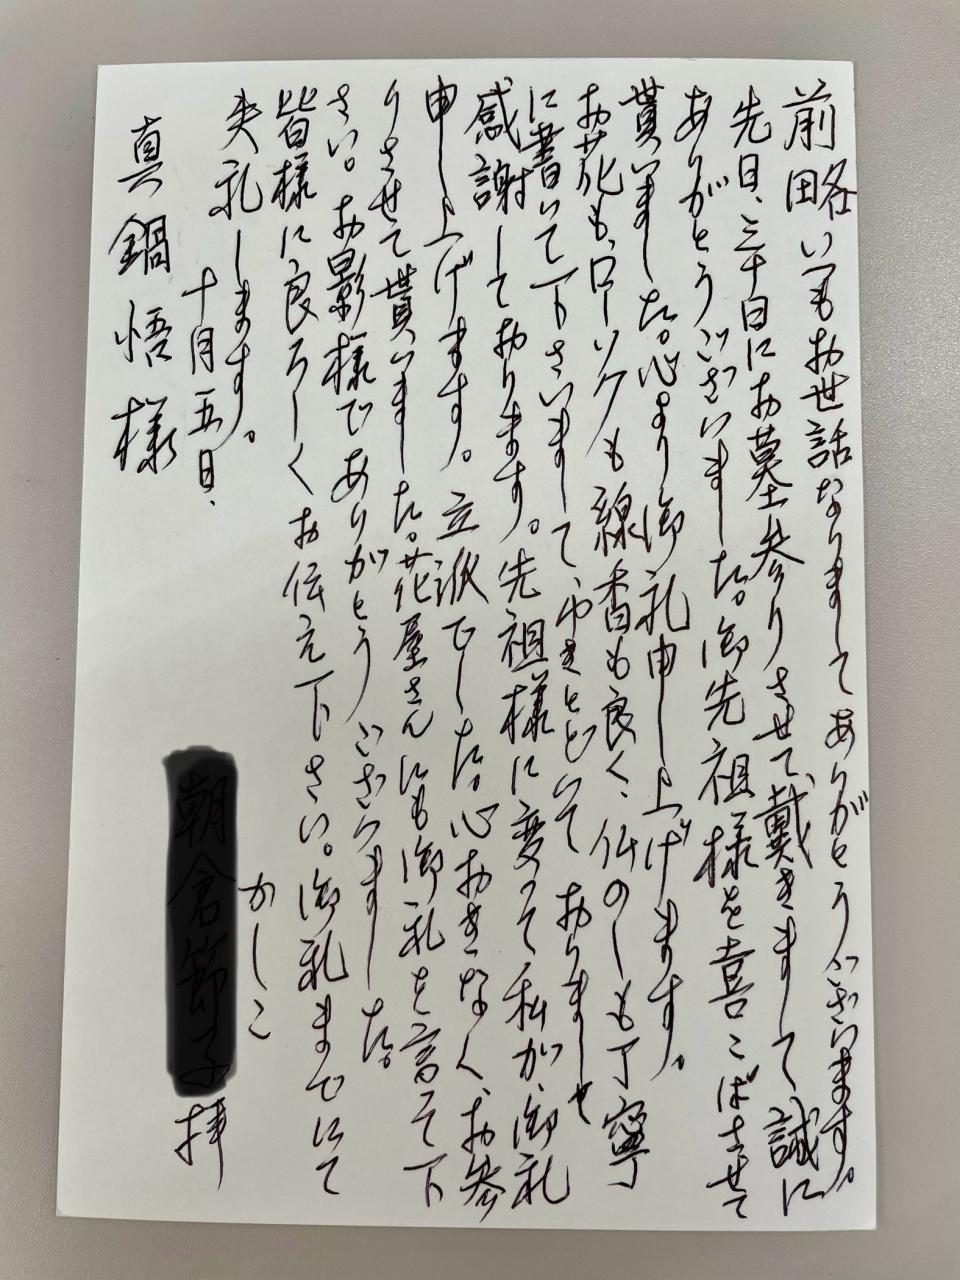 前略いつもお世話なりましてありがとうございます。
先日、三十日にお墓参りさせて、戴きまして、誠に
ありがとうございました。御先祖様を喜こばさせて
貰いました。心より御礼申し上げます。
お花も、ローソクも線香も良く、仏のしも丁寧
に書いて下さいまして、ゆきとどいて おりまして
感謝しております。先祖様に変って私が、御礼
申し上げます。立派でした。心おきなく、お参
りさせて貰いました。花屋さんにも御礼を言って下
さい。お影様でありがとうございました。
皆様に良ろしくお伝え下さい。御礼までにて
失礼します。
かしこ
十月五日、
拝
真鍋悟様